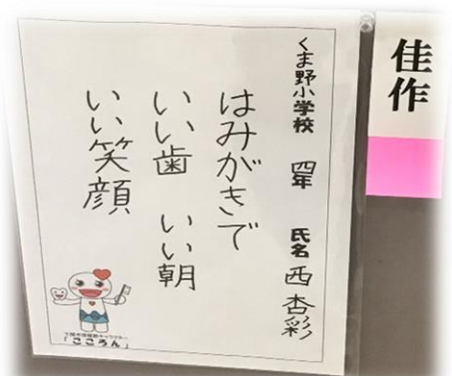 佳作
くま野小学校 四年 氏名 西 杏彩
はみがきで
いい歯 いい朝
いい笑顔
「こころん」